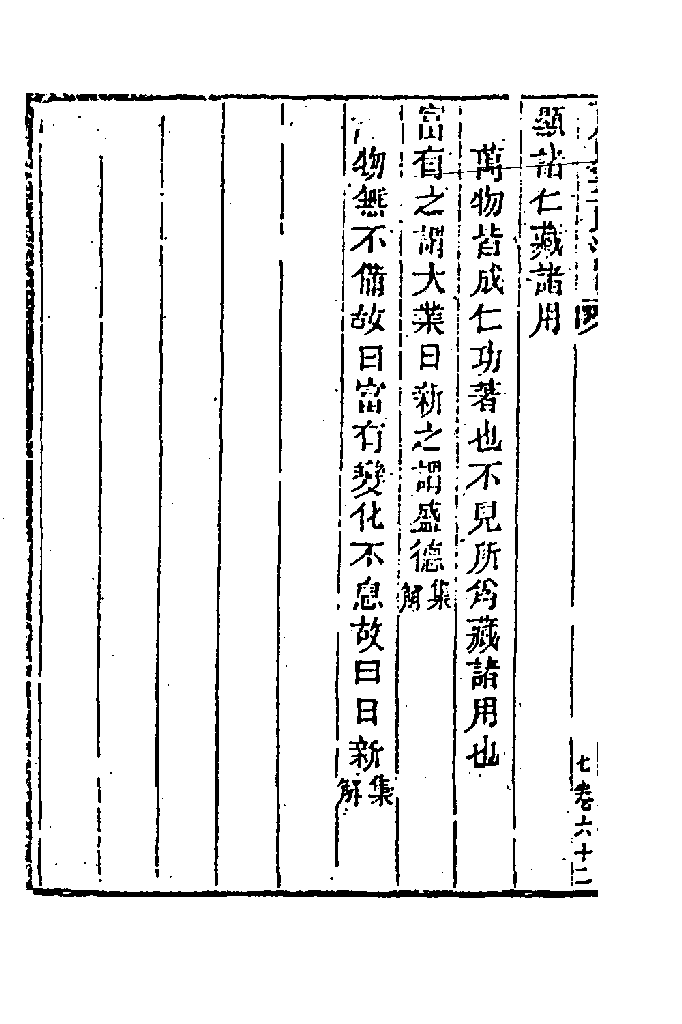 顯諸仁藏諸用
萬物皆成仁功著也不見所爲藏諸用也
富有之謂大業日新之謂盛德集解
物無不備故曰富有變化不息故曰日新集解
七卷六十二